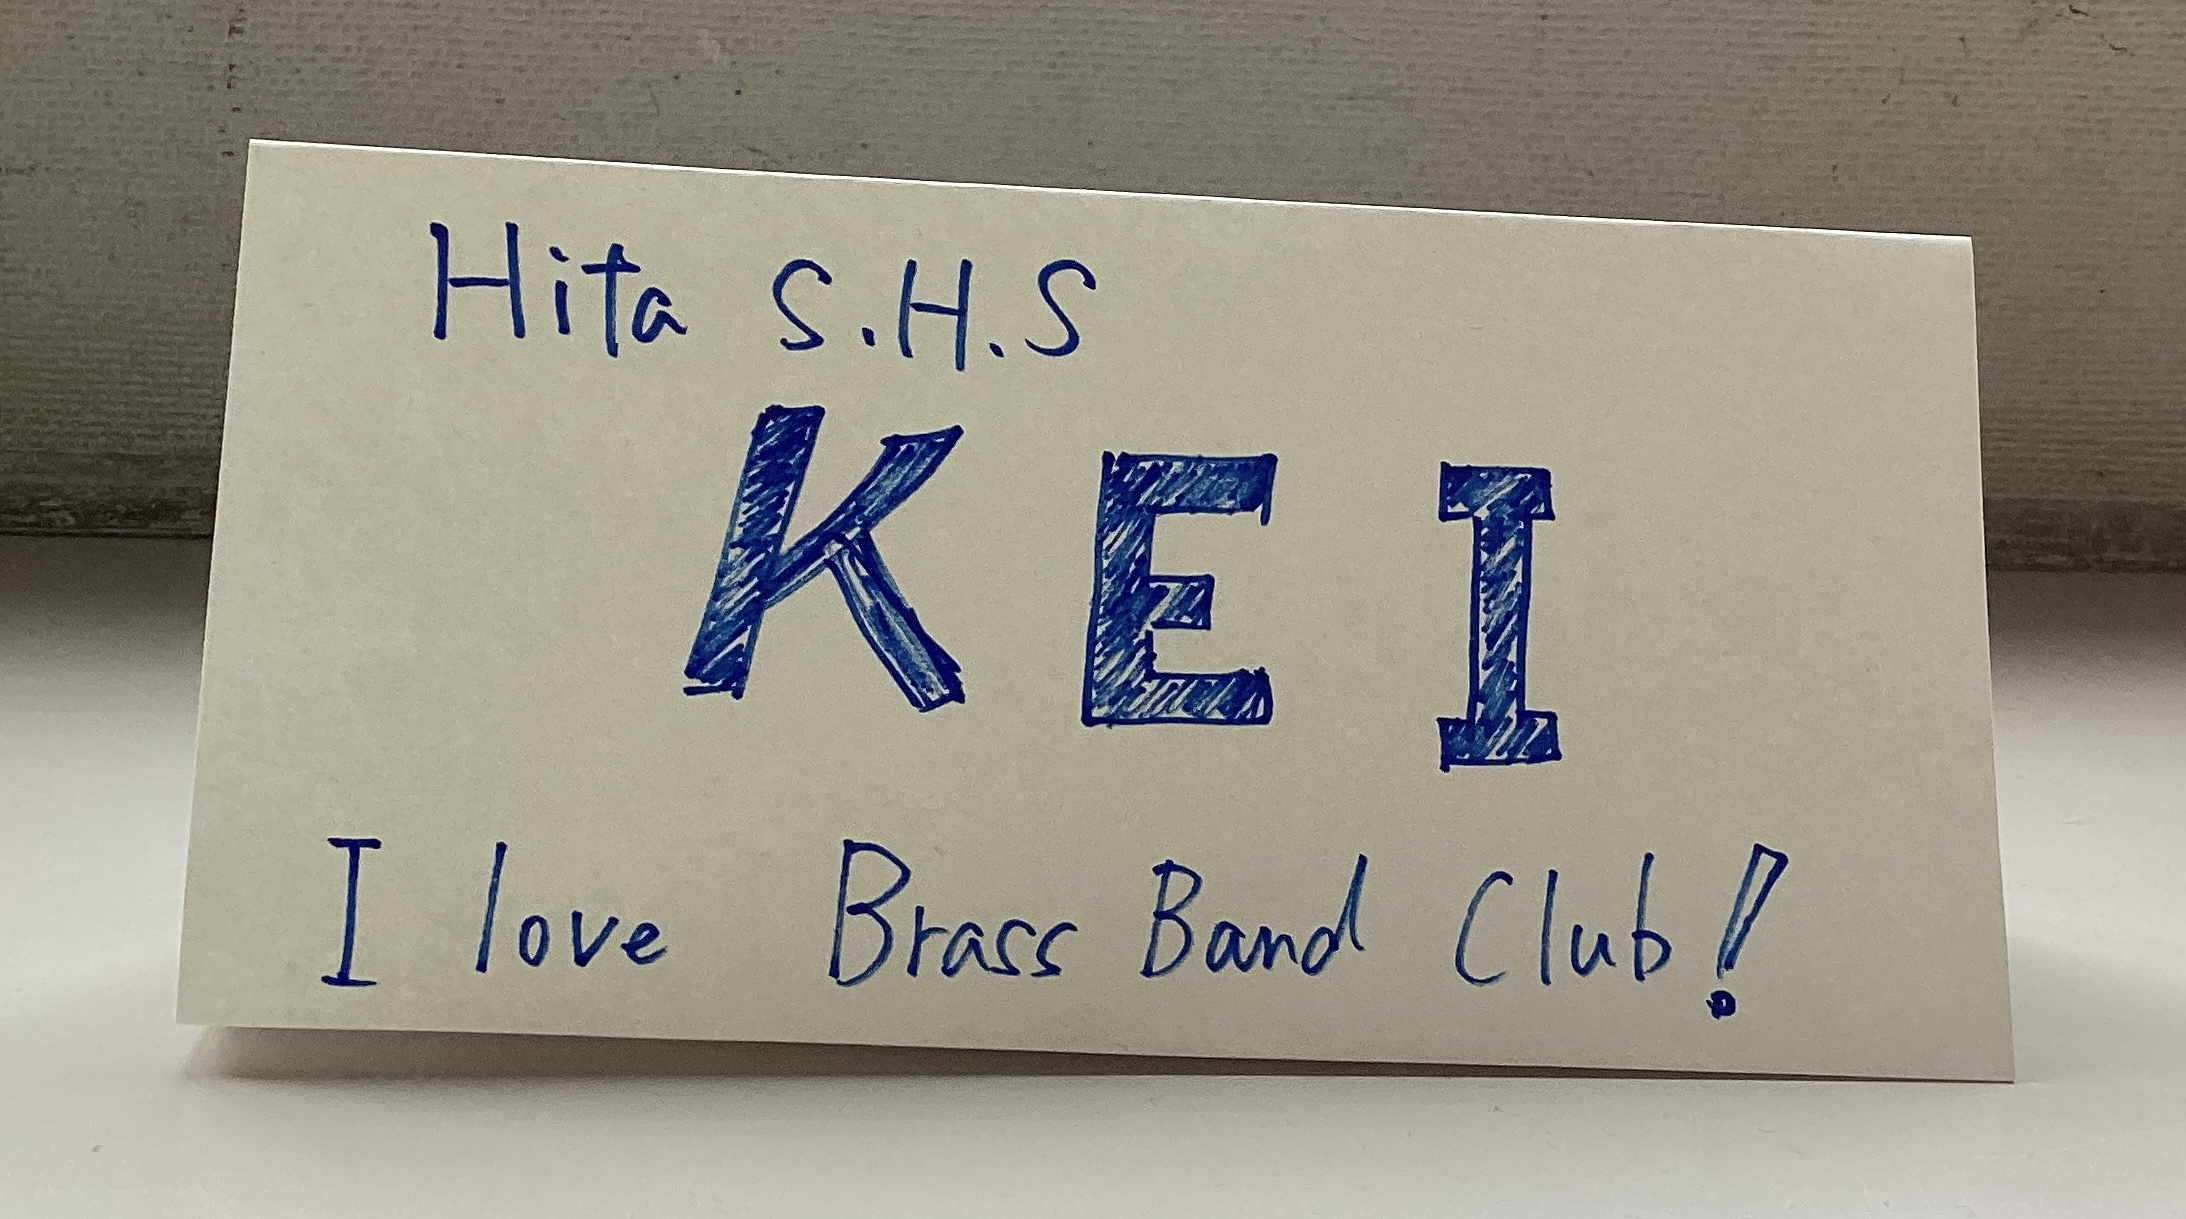 Hita S.H.S
KEI
I love Brass Band Club!